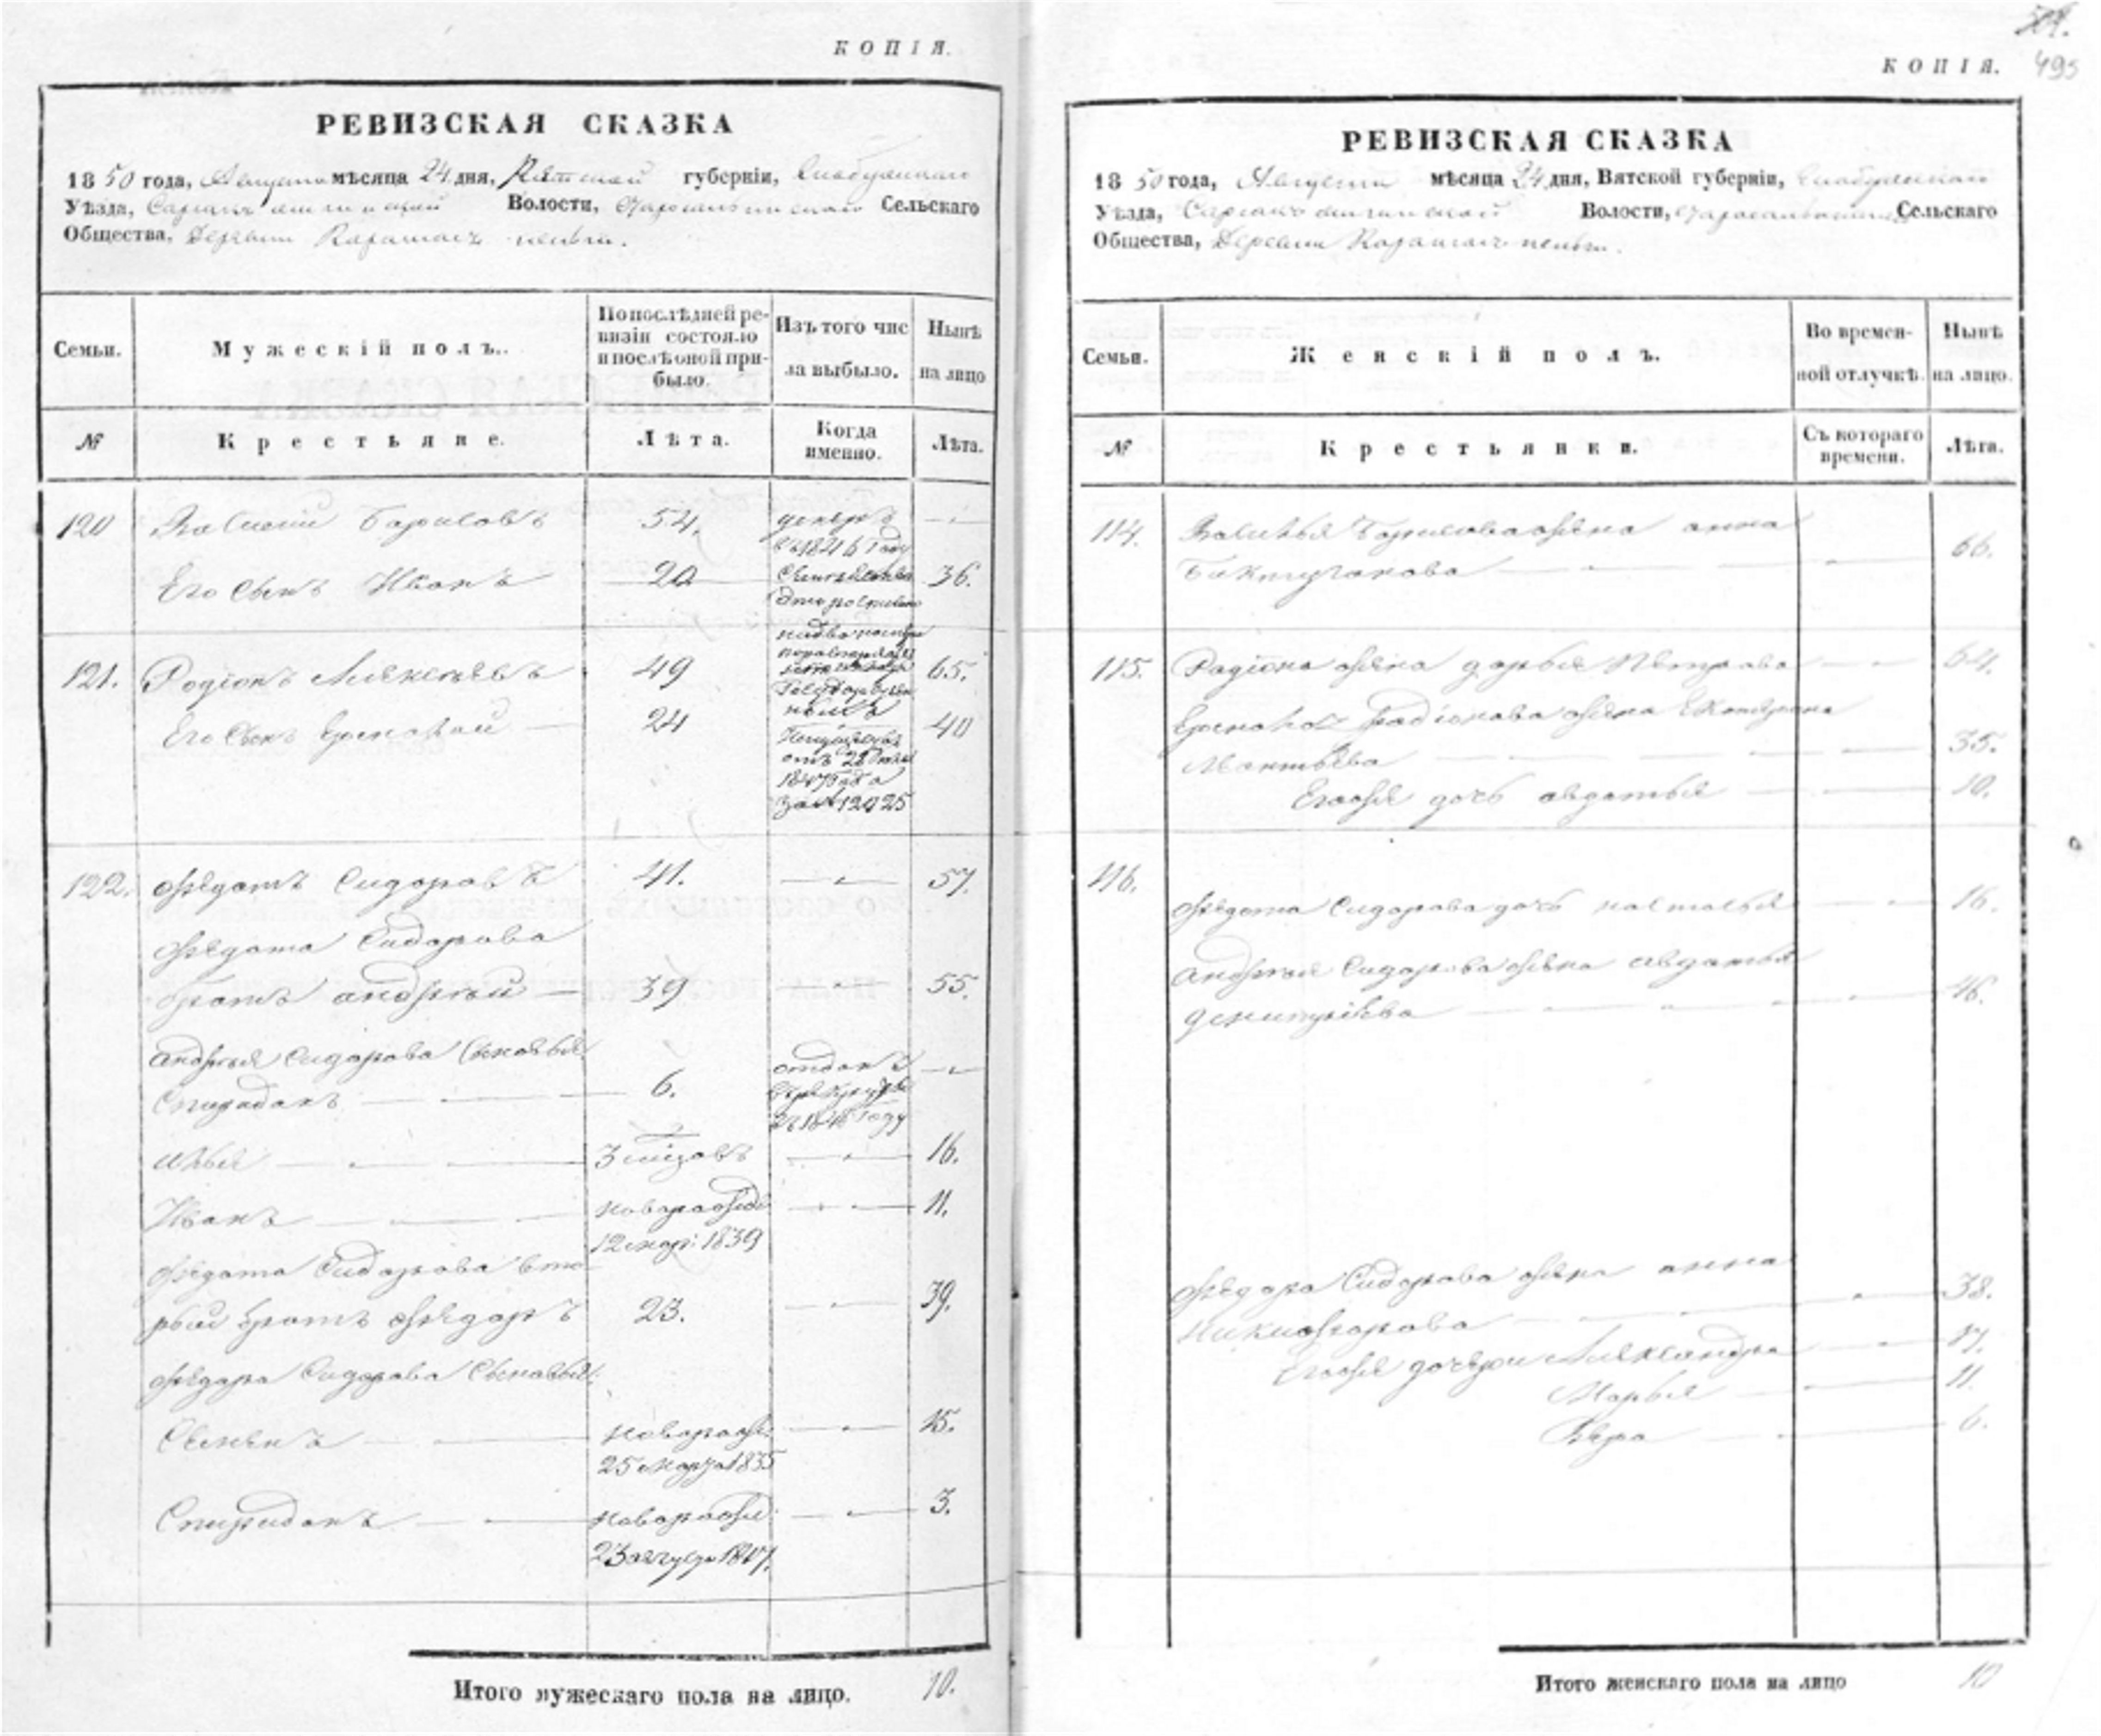 КОПІЯ.
РЕВИЗСКАЯ СКАЗКА
1850 года, Августа мѣсяца 24 дня, Вятской губерніи,
Уѣзда, Волости, Сельскаго
Общества, Деревни
Семьи.
Мужескій полъ.
По послѣдней ре-
визіи состояло
и послѣ оной при-
было.
Изъ того чис
ла выбыло.
Нынѣ
на лицо
№
Крестьяне.
Лѣта.
Когда
именно.
Лѣта.
120 Василій Борисовъ 54. умеръ
въ 1846 году
Его сынъ Иванъ 20 36.
121. Родіонъ Алексѣевъ 49 65.
Его сынъ 24 40
отъ 28
1847 года
за № 12025
122. Федотъ Сидоровъ 41. 57.
Федота Сидорова
братъ Андрей 39 55.
Андрея Сидорова сыновья
Спиридонъ 6. отданъ
въ рекруты
въ 1846 году
Илья 3 16.
Иванъ новорожд 11.
12 1839
Федота Сидорова вто
рый братъ Федоръ 23. 39.
Федора Сидорова сыновья
Семенъ новорож: 15.
25 марта 1835
Спиридонъ новорожд: 3.
23 августа 1847.
Итого мужескаго пола на лицо. 10.
504.
КОПІЯ. 495
РЕВИЗСКАЯ СКАЗКА
1850 года, Августа мѣсяца 24 дня, Вятской губерніи,
Уѣзда, Волости, Сельскаго
Общества, Деревни
Семьи.
Женскій полъ.
Во времен-
ной отлучкѣ.
Нынѣ
на лицо.
№
Крестьянки.
Съ котораго
времени.
Лѣта.
114. Василья Борисова жена Анна
66.
115. Радіона жена Дарья Петрова 64.
Радіонова жена Екатерина
35.
Егожъ дочь Авдотья 10.
116.
Федота Сидорова дочь Настасья 16.
Андрея Сидорова жена Авдотья
46.
Федора Сидорова жена Анна
Никифорова 38.
Егожъ дочери Александра 17.
Марья 11.
Вера 6.
Итого женскаго пола на лицо 10